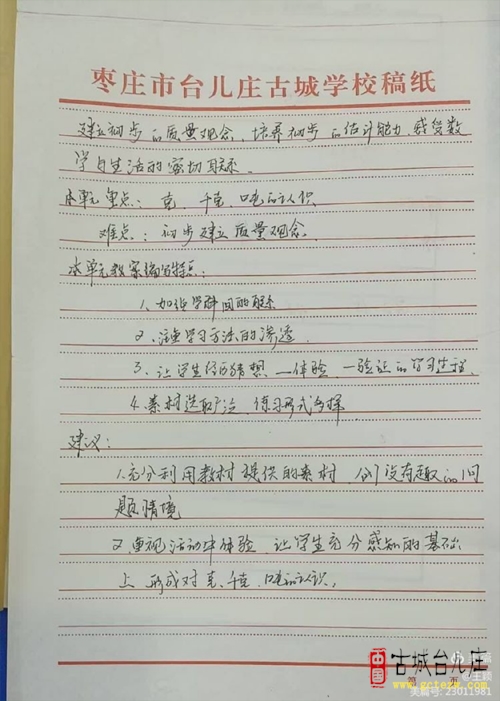 枣庄市台儿庄古城学校稿纸
建立初步的质量观念,培养初步的估计能力,感受数
学与生活的密切联系.
本单元重点:克、千克、吨的认识
难点:初步建立质量观念.
本单元教案编写特点:
1、加强学科间的联系
2、注重学习方法的渗透.
3、让学生经历猜想、—体验、—验证的学习过程.
4、素材选取广泛,练习形式多样
建议:
1.充分利用教材提供的素材,创设有趣的问
题情境
2、重视活动中体验,让学生充分感知的基础
上形成对克、千克、吨的认识.
中国
古城台儿庄
www.gctezw.com
第 页
美篇号:23011981